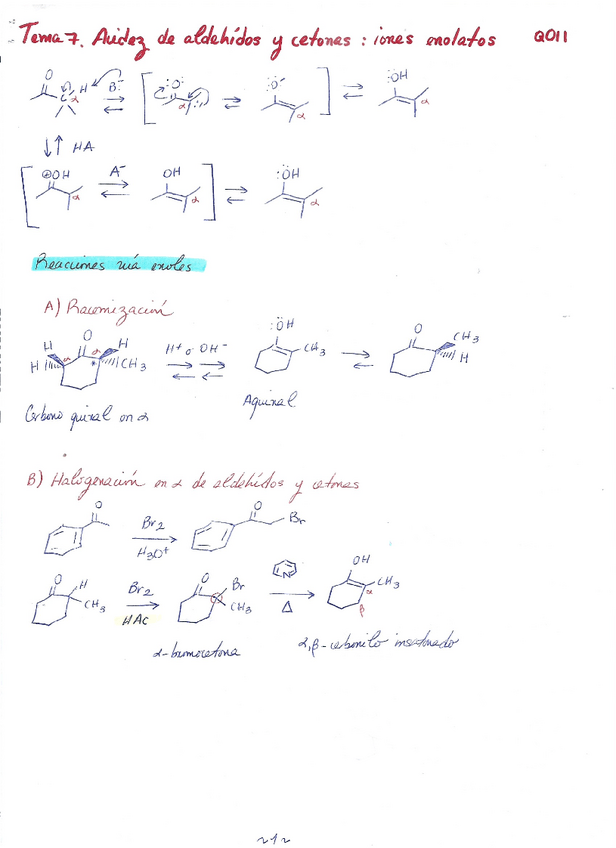 Tema 7. Acidez de aldehídos y cetonas : iones enolatos QOII
O H B: :O: O⁻ :ÖH
α α α α
↓↑ HA
⊕OH A⁻ OH :ÖH
α α α
Reacciones vía enoles
A) Racemización
:ÖH
H O H H⁺ o OH⁻ CH₃ O CH₃
H α α * CH₃ H
Carbono quiral en α Aquiral
B) Halogenación en α de aldehídos y cetonas
O Br₂ O Br
H₃O⁺
O H Br₂ O Br N OH
CH₃ HAc CH₃ Δ CH₃ α β
α-bromocetona α,β-carbonilo insaturado
212